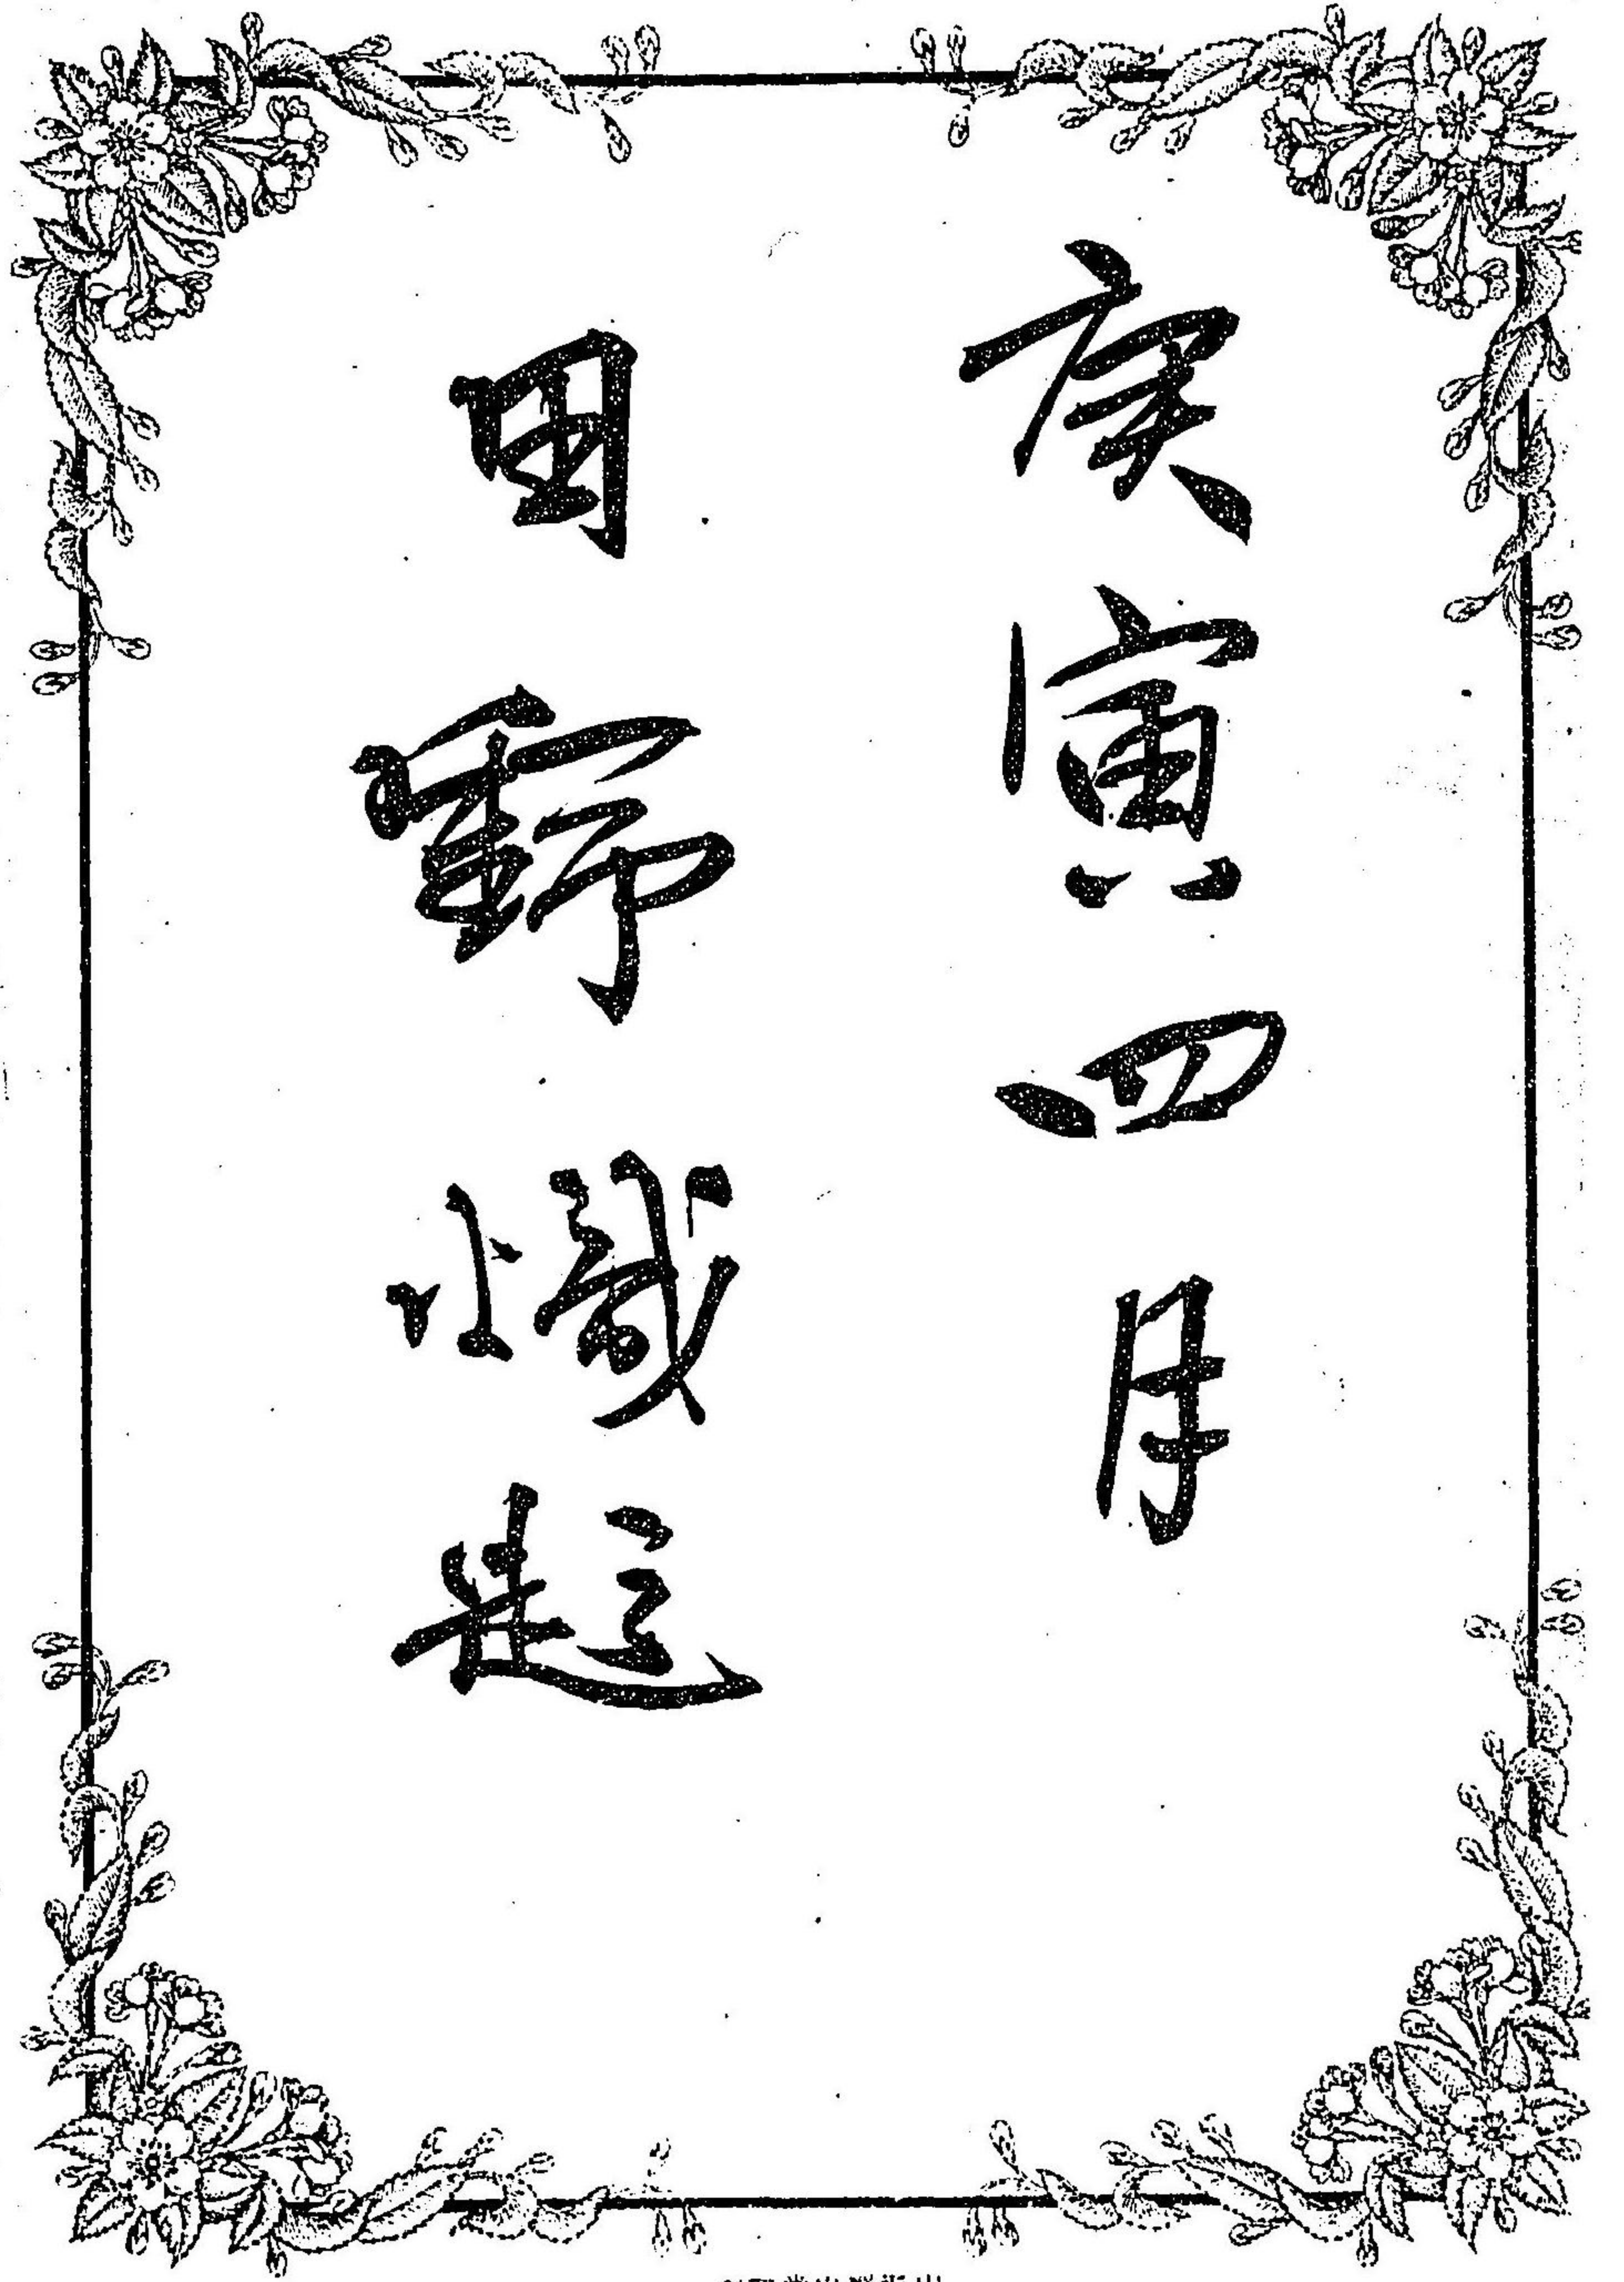 庚寅四月
田野熾題